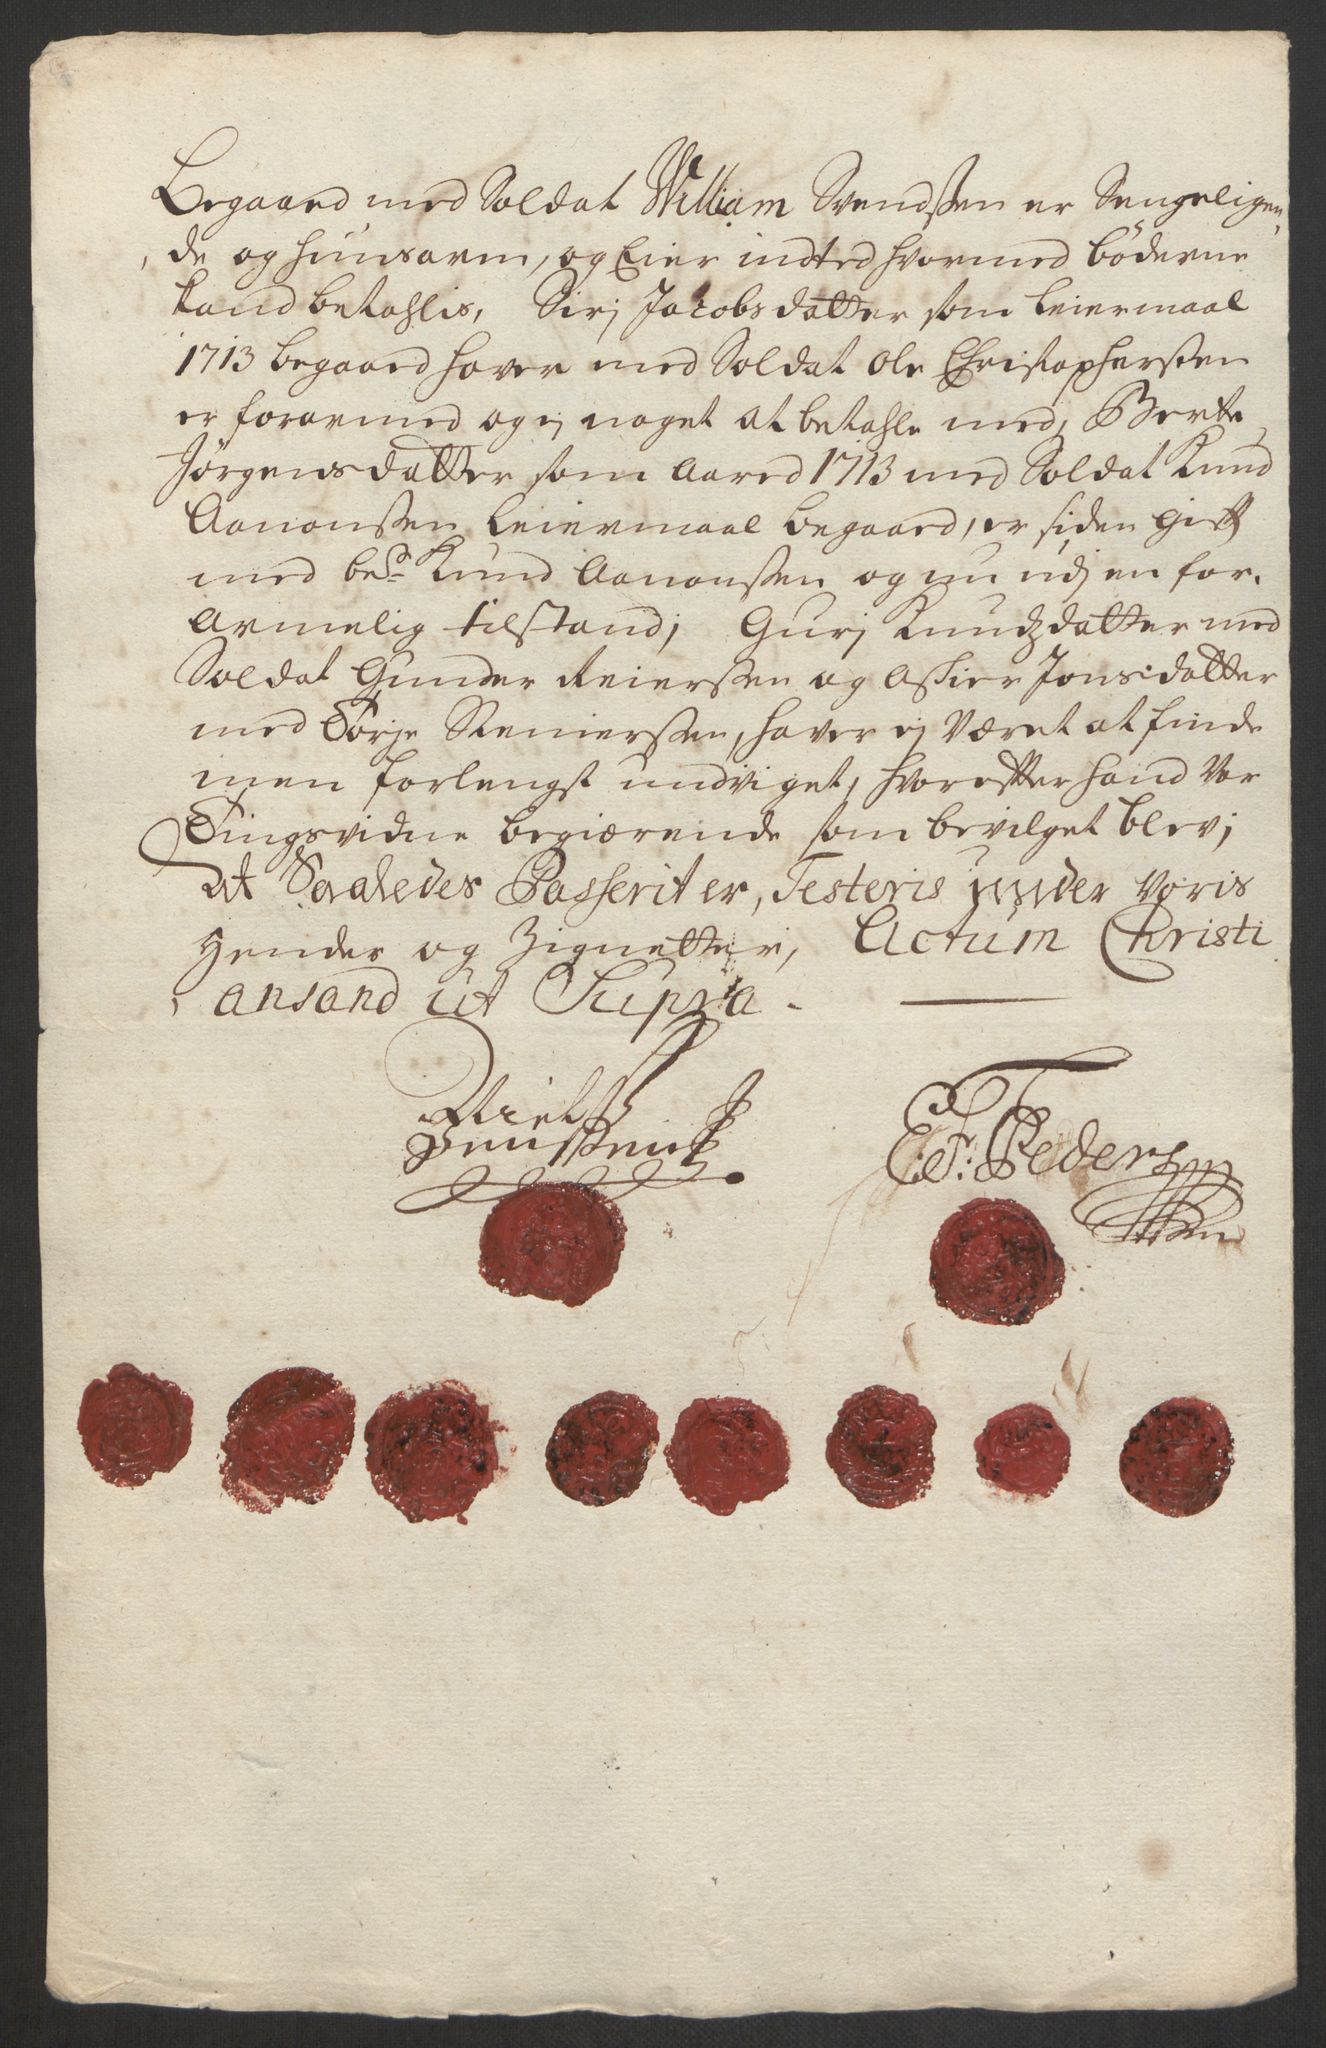 Begaaed med Soldat William Svendssen er Sengeligen
de og huusarm, og Eier indted hvormed böderne
kand betahlis, Sirj Jacobsdatter som Leiermaal
1713 begaaed haver med Soldat Ole Christophersen
er forarmed og ej noget at betahle med, Berte
Jörgensdatter som Aared 1713 med Soldat Knud
Aanonssen Leiermaal begaaed, er siden gift
med besd Knud Aanonssen og nu udj en for-
armelig tilstand; Gurj Knudsdatter med
Soldat Gunder Reierssen og Assier Jonsdatter
med Törje Reinerssen, haver ej Været at finde
men forlengst undviget, hvorefter hand Var
Tingsvidne begiærende som bevilget blev;
At Saaledes Passerit er, Testeris under voris
Hender og Zignetter, Actum Christi
ansand ut Supra.
Niels
Jenssen
E: P: Pedersen